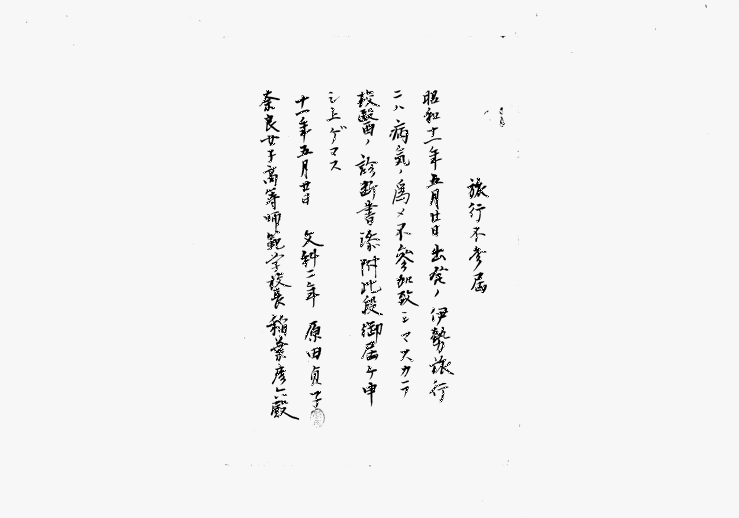 旅行不参届
昭和十一年五月廿日出発ノ伊勢旅行
ニハ病気ノ為メ不参加致シマスカラ
校医ノ診断書添附此段御届ケ申
シ上ゲマス
十一年五月廿日 文科二年 原田貞子
奈良女子高等師範学校長 稲葉彦六殿